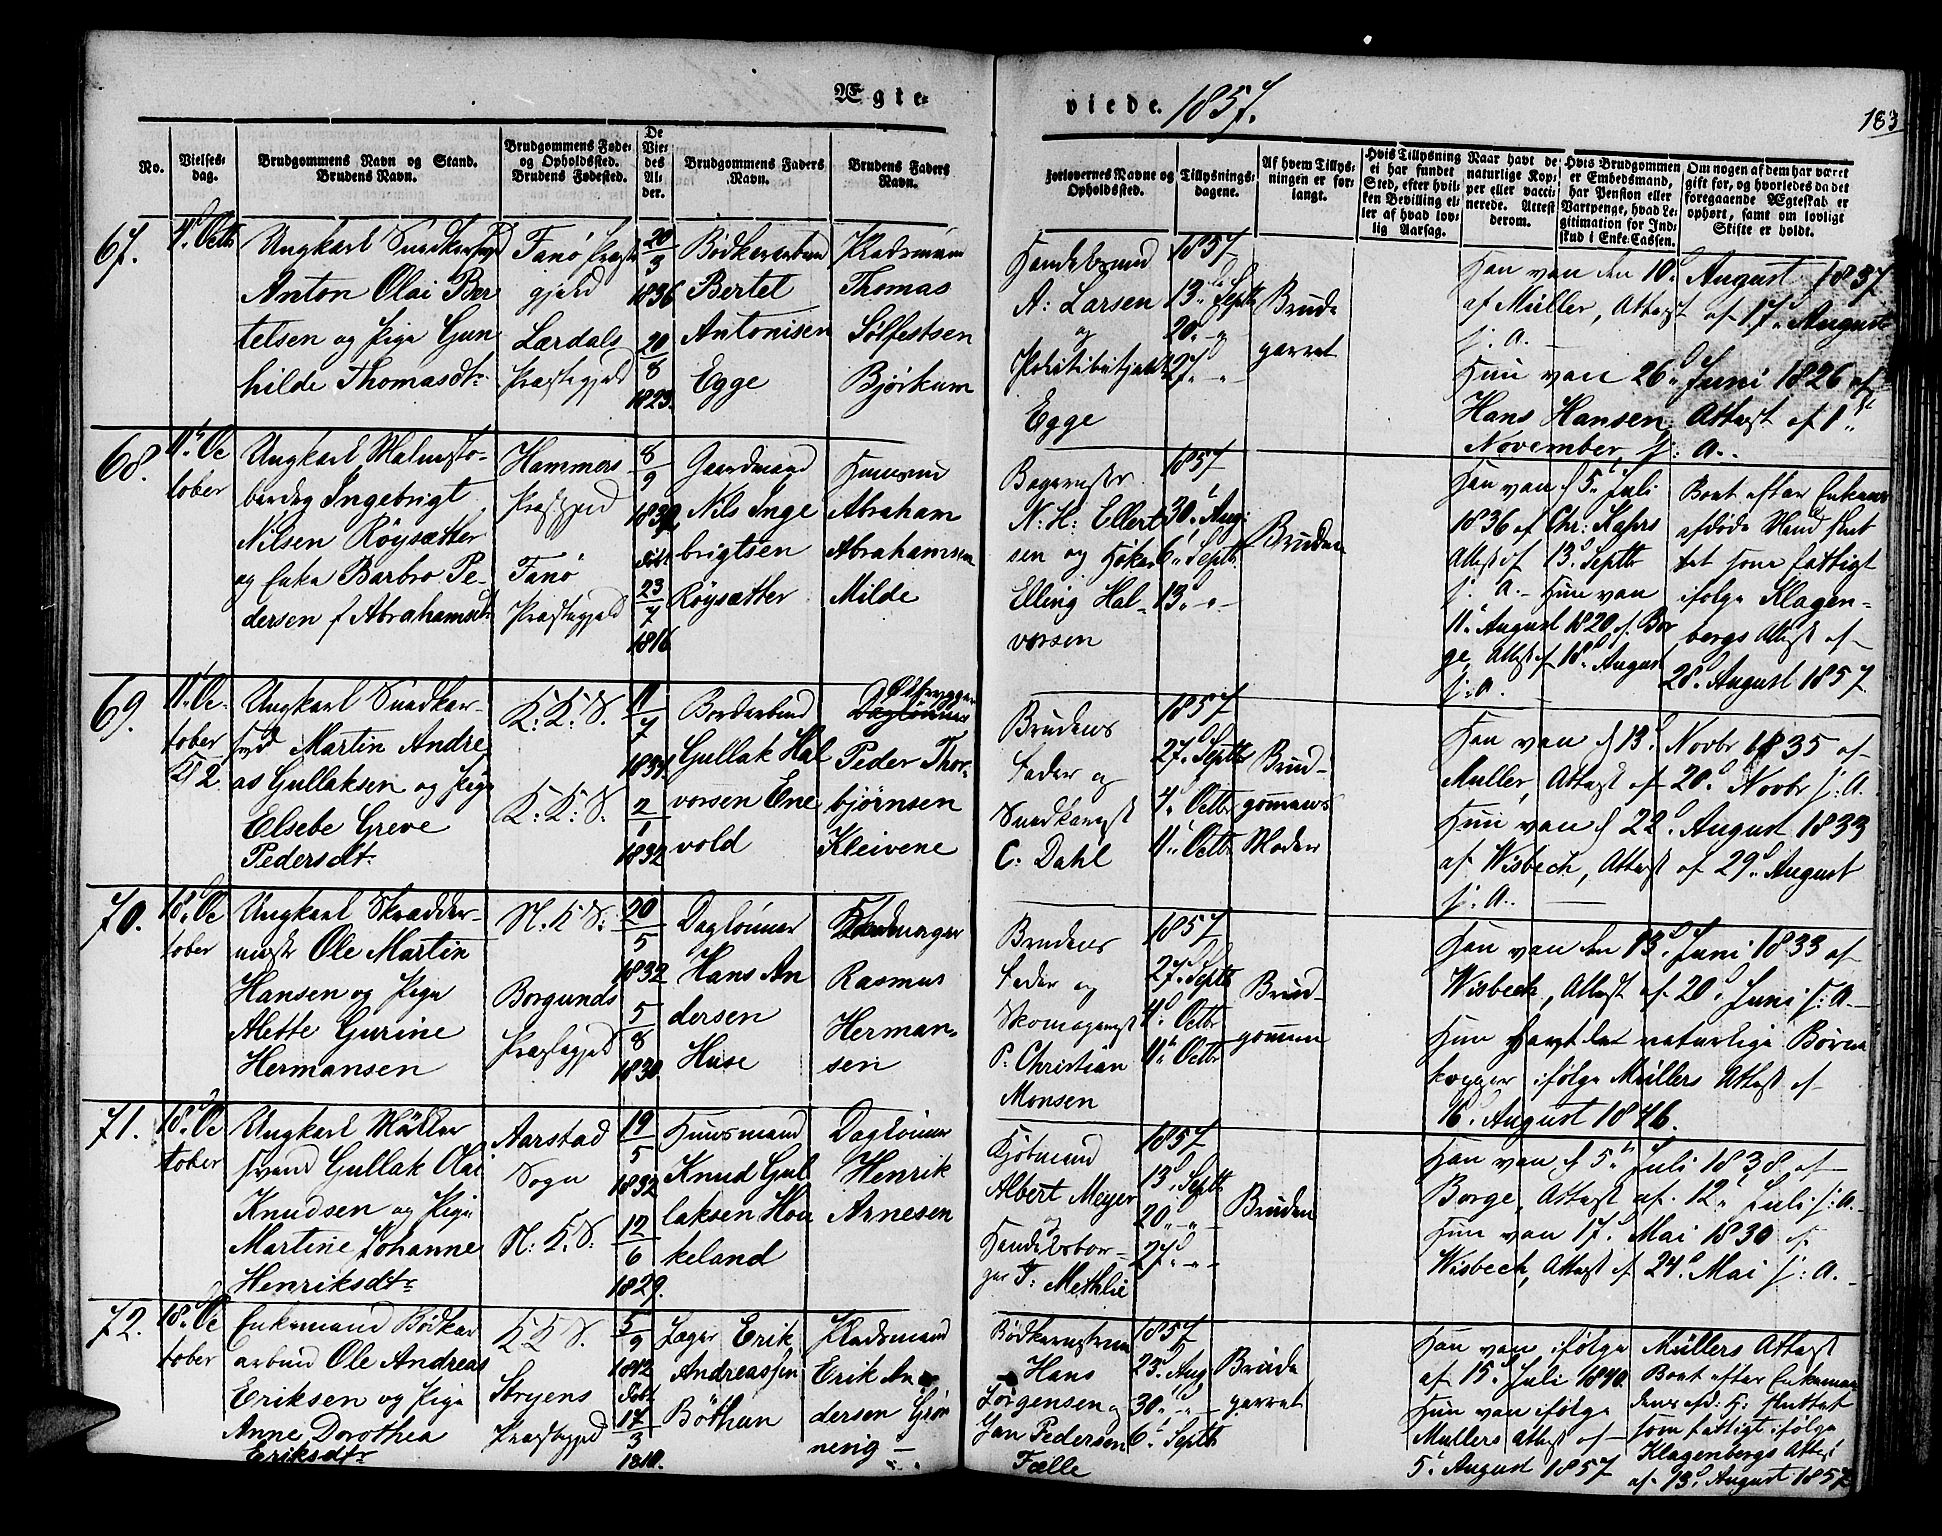 Ægte-
viede. 1857.
183
No.
Vielses-
dag.
Brudgommens Navn og Stand.
Brudens Navn.
Brudgommens Føde-
og Opholdssted.
Brudens Fødested.
De
Vie-
des
Al-
der.
Brudgommens Faders
Navn.
Brudens Faders
Navn.
Forlovernes Navne og
Opholdssted.
Tillysnings-
dagene.
Af hvem Tillys-
ningen er for-
langt.
Hvis Tillysning
ei har fundet
Sted, efter hvil-
ken Bevilling el-
ler af hvad lov-
lig Aarsag.
Naar havt de
naturlige Kop-
per eller vacci-
nerede. Attest
derom.
Hvis Brudgommen
er Embedsmand,
har Pension eller
Vartpenge, hvad Le-
gitimation for Ind-
skud i Enke-Cassen.
Om nogen af dem har været
gift før, og hvorledes da det
foregaaende Ægteskab er
ophørt, samt om lovligt
Skifte er holdt.
67.
4. Octb
Ungkarl Snedkersvend
Anton Olai Ber
telsen og Pige Gun
hilde Thomasdtr
Fanø Præste
gjeld
Lærdals
Præstegjeld
20
3
1836
20
8
1823.
Bødkerarbeid
Bertel
Antonisen
Egge
Pladsmand
Thomas
Sølfestsen
Bjørkum
Handelsmand
A. Larsen
og
Politibetjent
Egge
1857
13. Septb
20. "
27. "
Brude
parret
Han vac. den 10. August 1837
af Müller, Attest af 17. August
s. a.
Hun vac. 26. Juni 1826 af
Hans Hansen, Attest af 1.
November s. a.
68.
11. Oc
tober
Ungkarl
Ingebrigt
Nilsen Röysætter
og Enke Barbro Pe-
dersen f Abrahamsdtr
Hammers
Præstgjeld
Fanø
Præstegjeld
8
9
23
7
1816
Gaardmand
Nils Inge
brigtsen
Röysætter
Huusmand
Abraham
Abrahamsen
Milde
Bagermester
N. H. Ellert
sen og Høker
Elling Hal-
vorsen
1857
30. Aug.
6. Septb.
13. "
Bruden
Han vac. d 5. Juli
1836 af Chr. Kahrs
Attest af 13. Septbr
s. a. Hun vac.
11. August 1820 af Bor
ge, Attest af 18. August
s. a.
Boet efter Enkens
afdøde Mand slut
tet som fattigt
ifølge Klagen-
bergs Attest af
28. August 1857
69.
11. Oc-
tober
Kl 2
Ungkarl Snedker-
svd Martin Andre
as Gullaksen og Pige
Elsebe Greve
Pedersdtr
K. K. S.
K. K. S.
11
7
2
1
1832
Borderbund
Gullak Hal
vorsen Ene
vold
Peder Thor-
bjørnsen
Kleivene
Brudens
Fader og
Snedkermst
C. Dahl
1857
27. Septb
4. Octbr
11. Octbr
Brud-
gommens
Moder
Han vac. d 13. Novbr 1835 af
Müller, Attest af 20. Novbr s. A.
Hun vac. d 22. August 1833
af Wisbech, Attest af 29. August
s. A.
70.
18. Oc
tober
Ungkarl Skrædder-
mestr Ole Martin
Hansen og Pige
Alette Gurine
Hermansen
N. K. S.
Borgunds
Præstegjeld
20
5
1832
5
8
1830
Dagløner
Hans An
dersen
Huse
Rasmus
Herman-
sen
Brudens
Fader og
Skomagermst
P. Christian
Monsen
1857
27. Septb
4. Octbr
11. Octbr
Brud-
gommen
Han vac. den 13. Juni 1833 af
Wisbech, Attest af 20. Juni s. A.
Hun havt det naturlige Børne
kopper ifølge Müllers Attest af
16. August 1846.
71.
18. Oc
tober
Ungkarl Møller
svend Gullak Olai
Knudsen og Pige
Martine Johanne
Henriksdtr
Aarstad
Sogn
N. K. S.
19
5
1832
12
6
1829.
Huusmand
Knud Gul
laksen Hau
keland
Dagløner
Henrik
Arnesen
Kjøbmand
Albert Meyer
og
Handelsbor-
ger T. Methlie
1857
13. Septb
20. "
27. "
Bruden
Han vac. d 5. Juli 1838 af
Borge, Attest af 12. Juli s. A.
Hun vac. 17. Mai 1830 af
Wisbech, Attest af 24. Mai s. A.
72.
18. Oc
tober
Enkemand Bødker
arbeid Ole Andreas
Eriksen og Pige
Anne Dorothea
Eriksdtr
K K S.
Stryens
Præstegjeld
5
9
1812
Født
17
3
1810.
Jæger Erik
Andreassen
Böthun
Pladsmand
Erik An
dersen Grøn
nerig
Bødkermestrene
Hans
Jørgensen og
Jan Pedersen
Fælle
1857
23. Aug
30. "
6. Septb
Brude
parret
Han vac. ifølge Müllers Attest
af 15. Juli 1840.
Hun vac. ifølge
Müllers Attest af
5. August 1857
Boet efter Enkeman
dens afd. H. sluttet
som fattigt ifølge
Klagenbergs Attest
af 13. August 1857